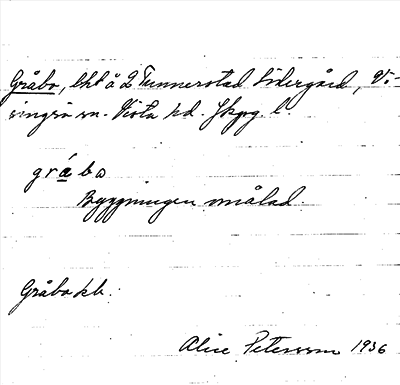 Gråbo, lht å 2 Tunnerstad Södergård, Vi-
singsö sn. Vista hd. Jkpg. l.
gråbo
Byggningen målad.
Gråbo kb.
Alice Petersson 1936